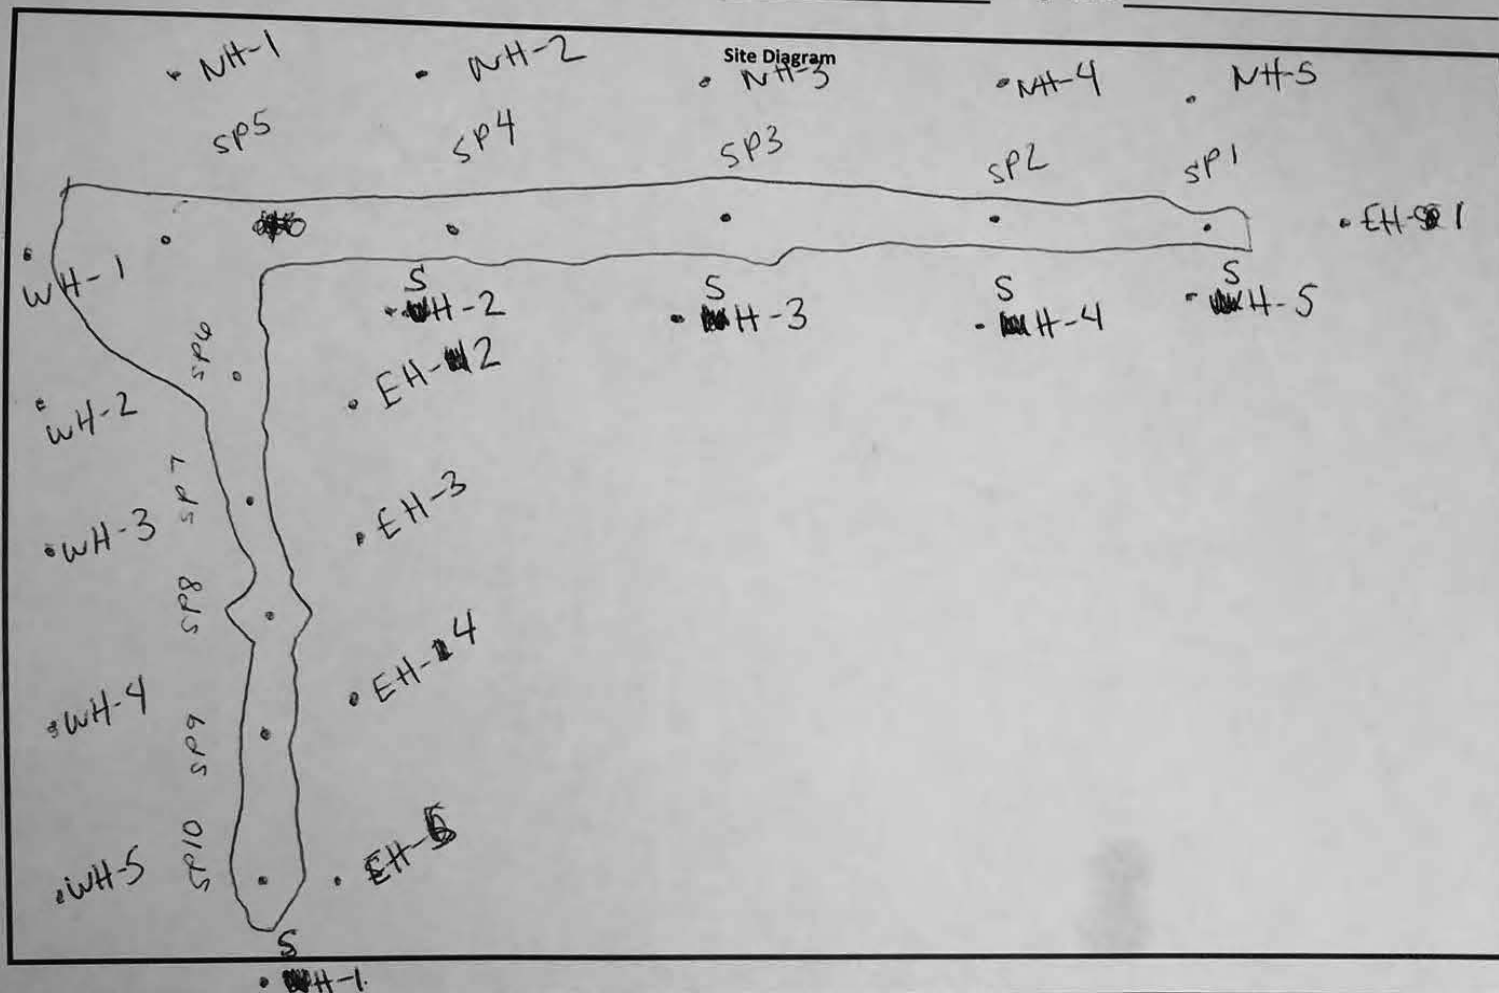 Site Diagram
NH-1
NH-2
NH-3
NH-4
NH-5
SP5
SP4
SP3
SP2
SP1
EH-1
WH-1
SH-2
SH-3
SH-4
SH-5
SP6
EH-2
WH-2
SP7
EH-3
WH-3
SP8
EH-4
WH-4
SP9
SP10
EH-5
WH-5
SH-1